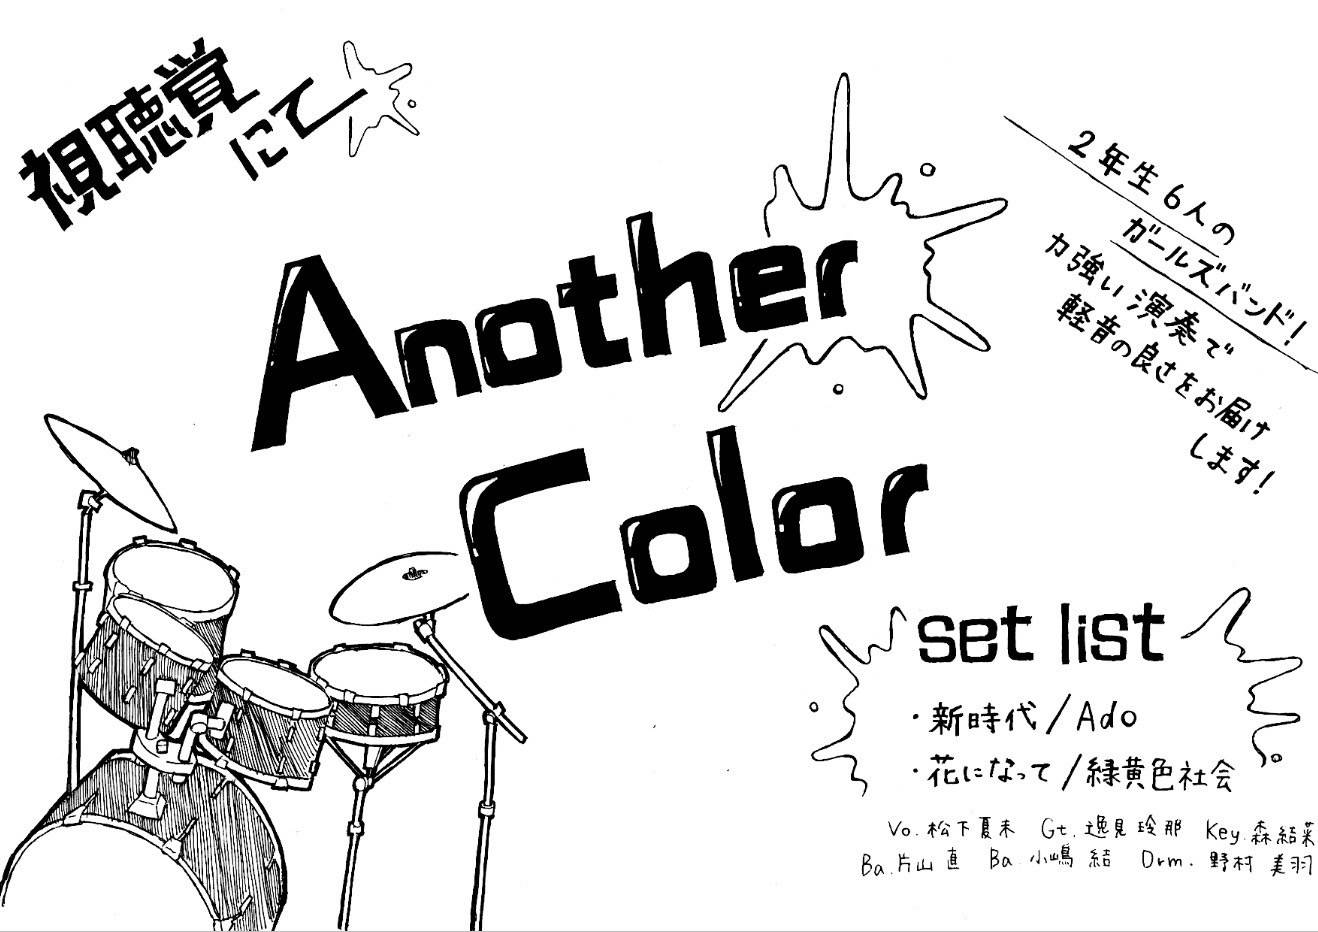 視聴覚
にて
Another
Color
2年生6人の
ガールズバンド!
力強い演奏で
軽音の良さをお届け
します!
set list
・新時代/Ado
・花になって/緑黄色社会
Vo.松下夏未 Gt.逸見玲那 Key.森結菜
Ba.片山直 Ba 小嶋結 Drm.野村美羽